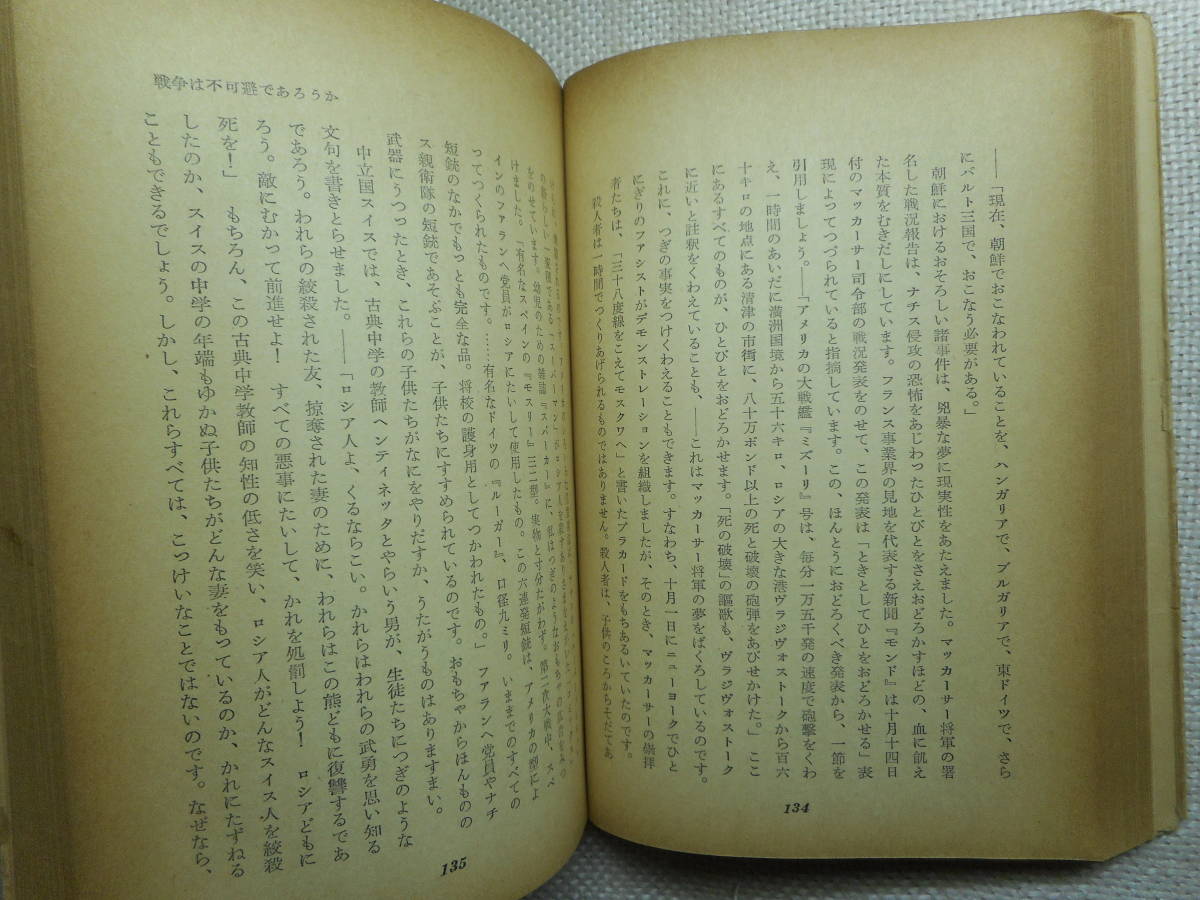 ――「現在、朝鮮でおこなわれていることを、ハンガリアで、ブルガリアで、東ドイツで、さら
にバルト三国で、おこなう必要がある。」
朝鮮におけるおそろしい諸事件は、兇暴な夢に現実性をあたえました。マッカーサー将軍の署
名した戦況報告は、ナチス侵攻の恐怖をあじわったひとびとをさえおどろかすほどの、血に飢え
た本質をむきだしにしています。フランス事業界の見地を代表する新聞『モンド』は十月十四日
付のマッカーサー司令部の戦況発表をのせて、この発表は「ときとしてひとをおどろかせる」表
現によってつづられていると指摘しています。この、ほんとうにおどろくべき発表から、一節を
引用しましょう。――「アメリカの大戦艦『ミズーリ』号は、毎分一万五千発の速度で砲撃をくわ
え、一時間のあいだに満洲国境から五十六キロ、ロシアの大きな港ヴラジヴォストークから百六
十キロの地点にある清津の市街に、八十万ポンド以上の死と破壊の砲弾をあびせかけた。」ここ
にあるすべてのものが、ひとびとをおどろかせます。「死の破壊」の謳歌も、ヴラジヴォストーク
に近いと註釈をくわえていることも、――これはマッカーサー将軍の夢をばくろしているのです。
これに、つぎの事実をつけくわえることもできます。すなわち、十月一日にニューヨークでひと
にぎりのファシストがデモンストレーションを組織しましたが、そのとき、マッカーサーの崇拝
者たちは、「三十八度線をこえてモスクワへ」と書いたプラカードをもちあるいていたのです。
殺人者は一時間でつくりあげられるものではありません。殺人者は、子供のころからそだてあ
134
をのせています。幼児のための雑誌『スパーカー』に、私はつぎのような
けました。「有名なスペインの『モスリー』三二型。実物と寸分たがわず。第二次大戦中、スペ
インのファランヘ党員がロシアにたいして使用したもの。この六連発短銃は、アメリカの型によ
ってつくられたものです。……有名なドイツの『ルーガー』、口径九ミリ。いままでのすべての
短銃のなかでもっとも完全な品。将校の護身用としてつかわれたもの。」ファランヘ党員やナチ
ス親衛隊の短銃であそぶことが、子供たちにすすめられているのです。おもちゃからほんものの
武器にうつったとき、これらの子供たちがなにをやりだすか、うたがうものはありますまい。
中立国スイスでは、古典中学の教師ヘンティネッタとやらいう男が、生徒たちにつぎのような
文句を書きとらせました。――「ロシア人よ、くるならこい。かれらはわれらの武勇を思い知る
であろう。われらの絞殺された友、掠奪された妻のために、われらはこの熊どもに復讐するであ
ろう。敵にむかって前進せよ！　すべての悪事にたいして、かれを処罰しよう！　ロシアどもに
死を！」　もちろん、この古典中学教師の知性の低さを笑い、ロシア人がどんなスイス人を絞殺
したのか、スイスの中学の年端もゆかぬ子供たちがどんな妻をもっているのか、かれにたずねる
こともできるでしょう。しかし、これらすべては、こっけいなことではないのです。なぜなら、
戦争は不可避であろうか
135